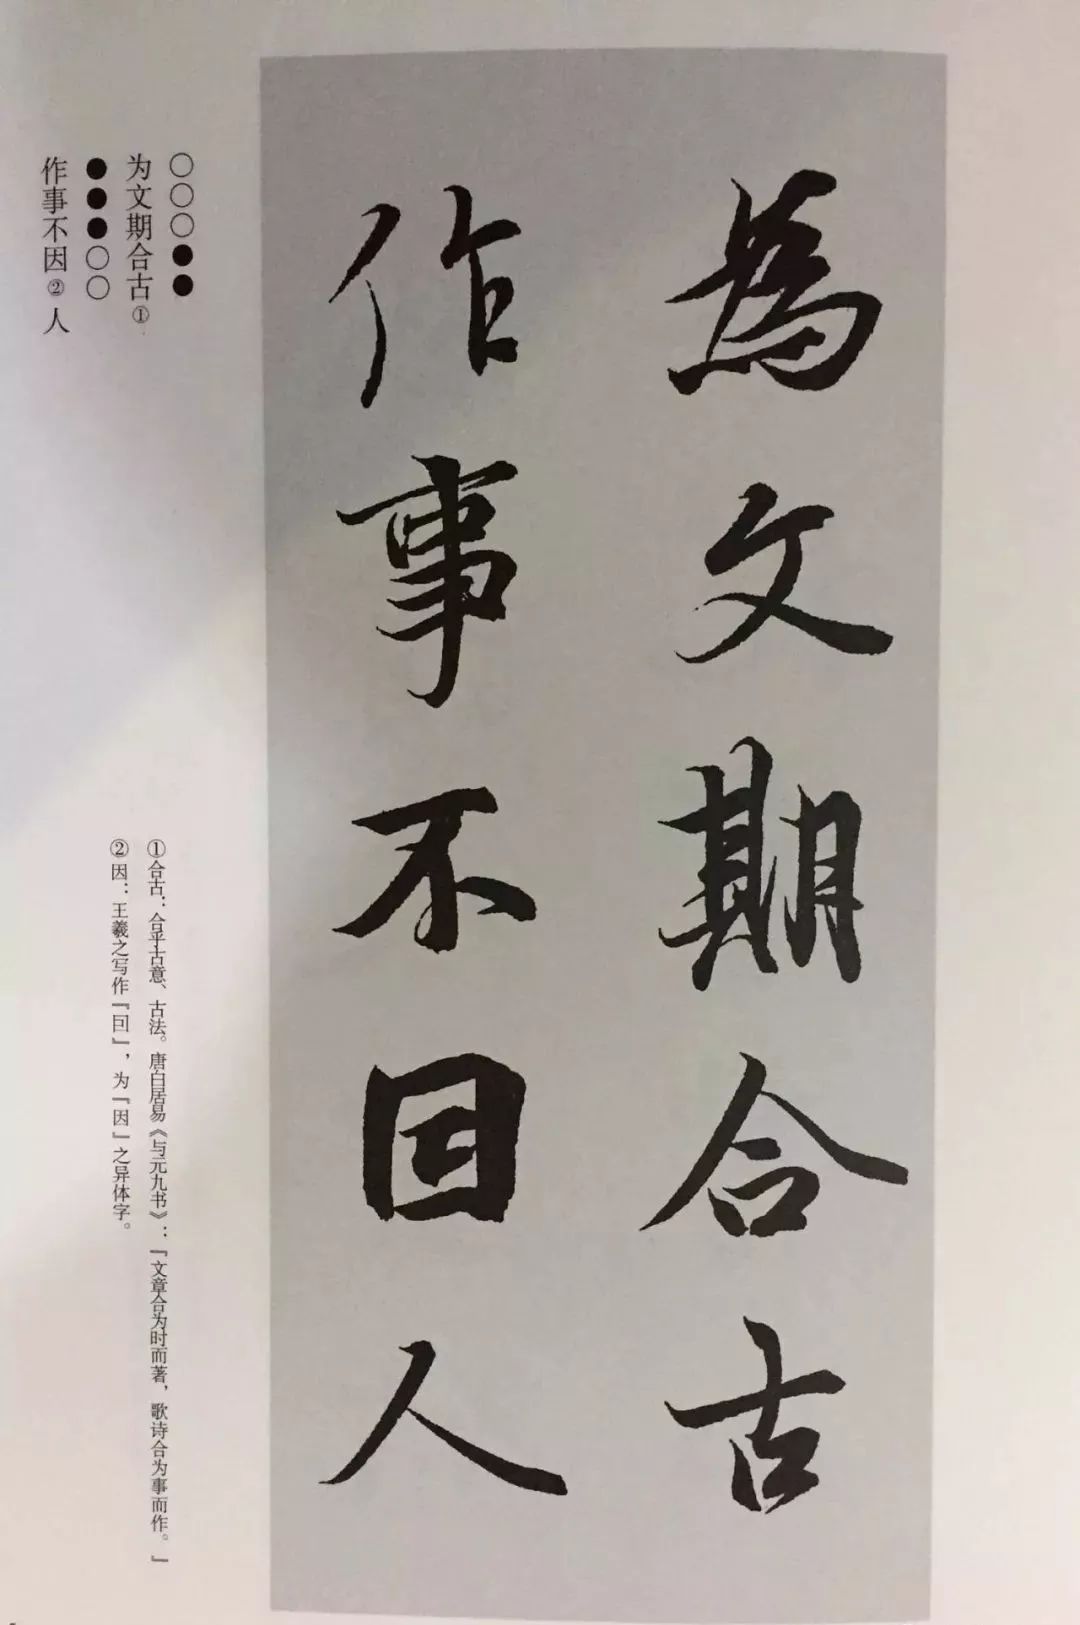 為文期合古
作事不囙人
○○○●●
为文期合古①
●●●○○
作事不因②人
①合古：合乎古意、古法。唐白居易《与元九书》：「文章合为时而著，歌诗合为事而作。」
②因：王羲之写作「囙」，为「因」之异体字。